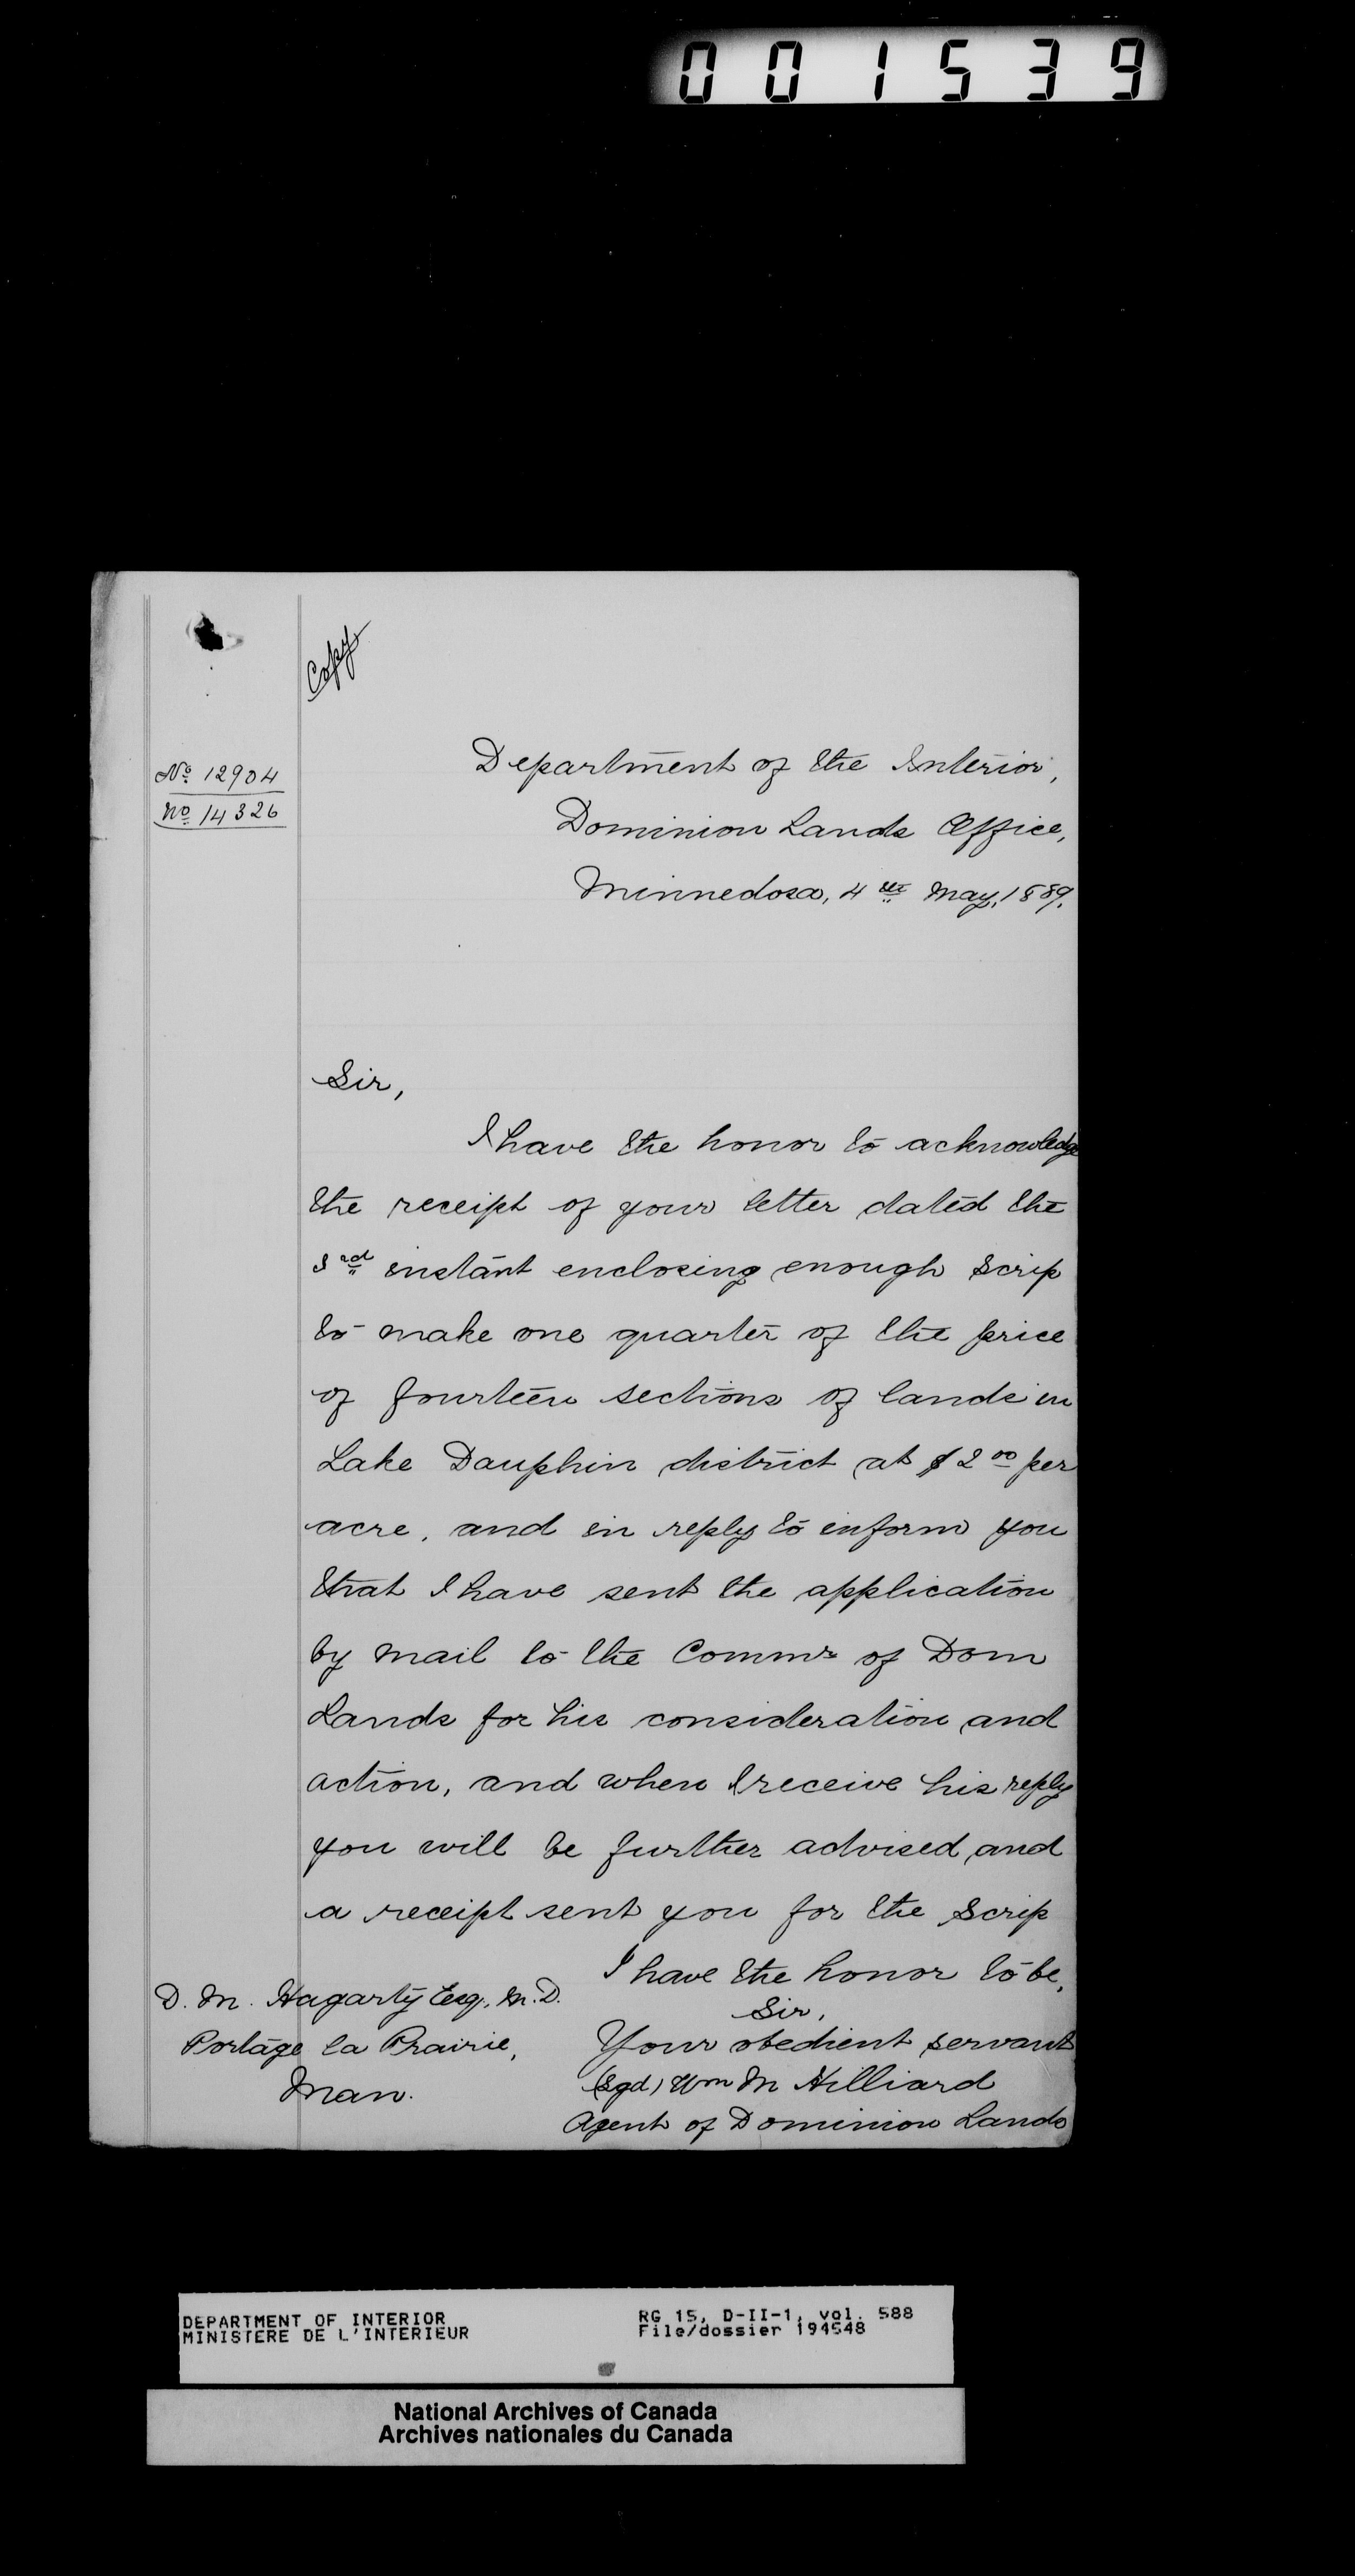 001539
Copy
No. 12904
No. 14326
Department of the Interior,
Dominion Lands Office,
Minnedosa, 4th May, 1889.
Sir,
I have the honor to acknowledge
the receipt of your letter dated the
3rd instant enclosing enough scrip
to make one quarter of the price
of fourteen sections of lands in
Lake Dauphin district at $2.00 per
acre, and in reply to inform you
that I have sent the application
by mail to the Commr of Dom
Lands for his consideration and
action, and when I receive his reply
you will be further advised and
a receipt sent you for the scrip
I have the honor to be,
Sir,
Your obedient servant
(Sgd) Wm M Hilliard
Agent of Dominion Lands
D. M. Hagarty Esq., M.D.
Portage la Prairie,
Man.
DEPARTMENT OF INTERIOR
MINISTERE DE L'INTERIEUR
RG 15, D-II-1, vol. 588
File/dossier 194548
National Archives of Canada
Archives nationales du Canada